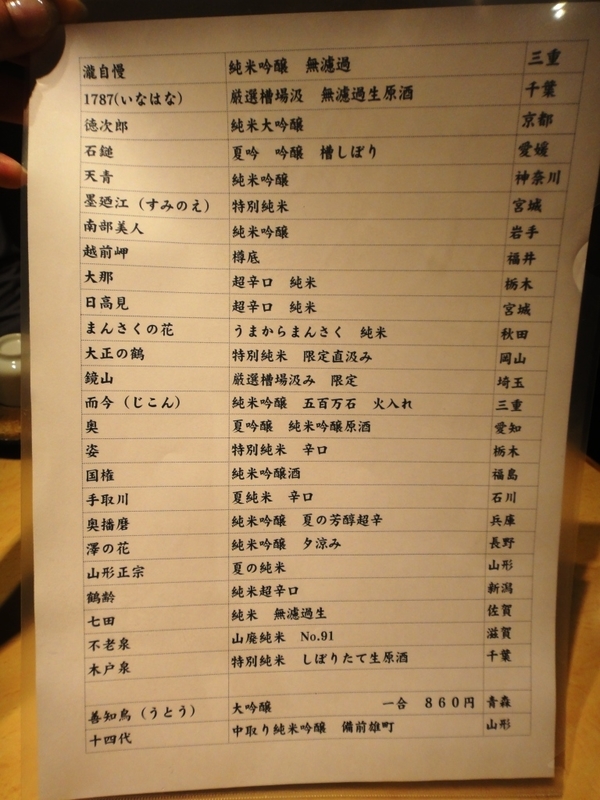 瀧自慢 純米吟醸 無濾過 三重
1787(いなはな) 厳選槽場汲 無濾過生原酒 千葉
徳次郎 純米大吟醸 京都
石鎚 夏吟 吟醸 槽しぼり 愛媛
天青 純米吟醸 神奈川
墨廼江(すみのえ) 特別純米 宮城
南部美人 純米吟醸 岩手
越前岬 樽底 福井
大那 超辛口 純米 栃木
日高見 超辛口 純米 宮城
まんさくの花 うまからまんさく 純米 秋田
大正の鶴 特別純米 限定直汲み 岡山
鏡山 厳選槽場汲み 限定 埼玉
而今(じこん) 純米吟醸 五百万石 火入れ 三重
奥 夏吟醸 純米吟醸原酒 愛知
姿 特別純米 辛口 栃木
国権 純米吟醸酒 福島
手取川 夏純米 辛口 石川
奥播磨 純米吟醸 夏の芳醇超辛 兵庫
澤の花 純米吟醸 夕涼み 長野
山形正宗 夏の純米 山形
鶴齢 純米超辛口 新潟
七田 純米 無濾過生 佐賀
不老泉 山廃純米 No.91 滋賀
木戸泉 特別純米 しぼりたて生原酒 千葉
善知鳥(うとう) 大吟醸 一合 860円 青森
十四代 中取り純米吟醸 備前雄町 山形